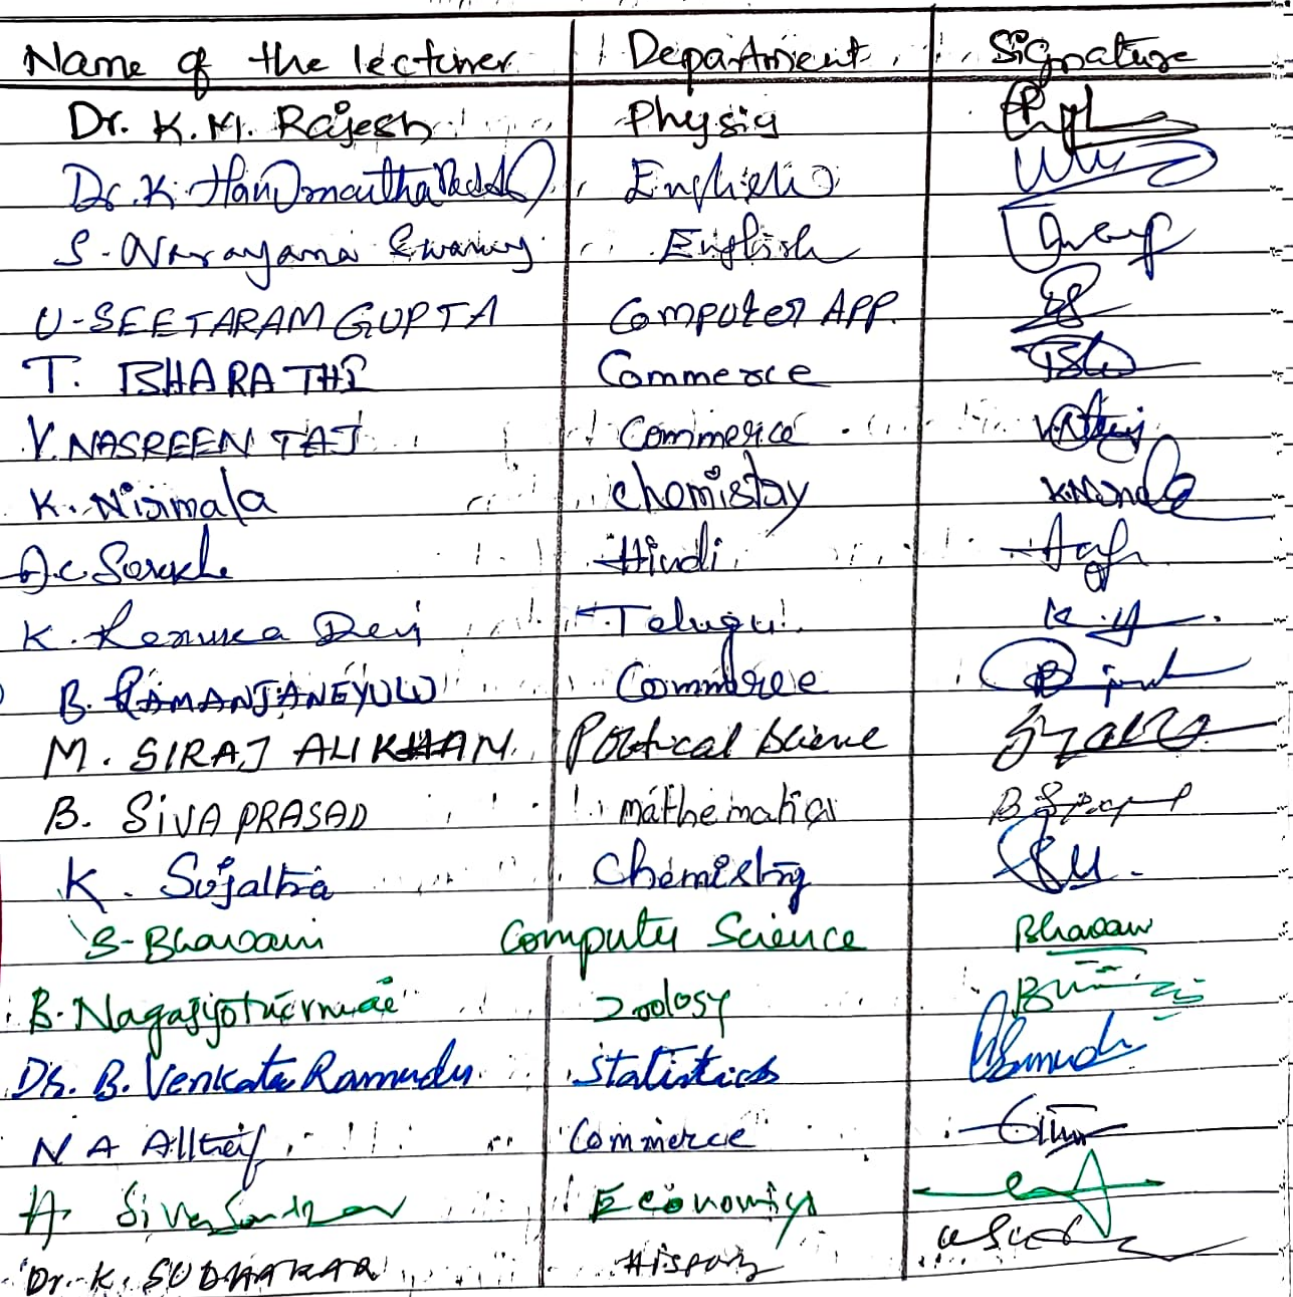 Name of the lecturer Department Signature
Dr. K. M. Rajesh Physics
Dr. K. Hanumantha Reddy English
S. Narayana Swamy English
U-SEETARAM GUPTA Computer APP.
T. BHARATHI Commerce
V. NASREEN TAJ Commerce V.N Taj
K. Nirmala Chemistry
Hindi
K. Renuka Devi Telugu
B. RAMANJANEYULU Commerce
M. SIRAJ ALI KHAN Political Science
B. SIVA PRASAD mathematics
K. Sujatha Chemistry
S-Bhavani Computer Science Bhavani
B. Zoology
Dr. B. Venkata Ramudu Statistics
N A Commerce
A. Siva Sankar Economics
Dr. K. SUDHAKAR History